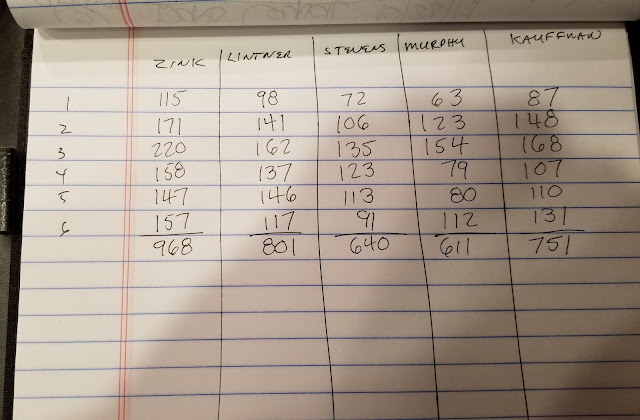 ZINK LINTNER STEVENS MURPHY KAUFFMAN
1 115 98 72 63 87
2 171 141 106 123 148
3 220 162 135 154 168
4 158 137 123 79 107
5 147 146 113 80 110
6 157 117 91 112 131
968 801 640 611 751